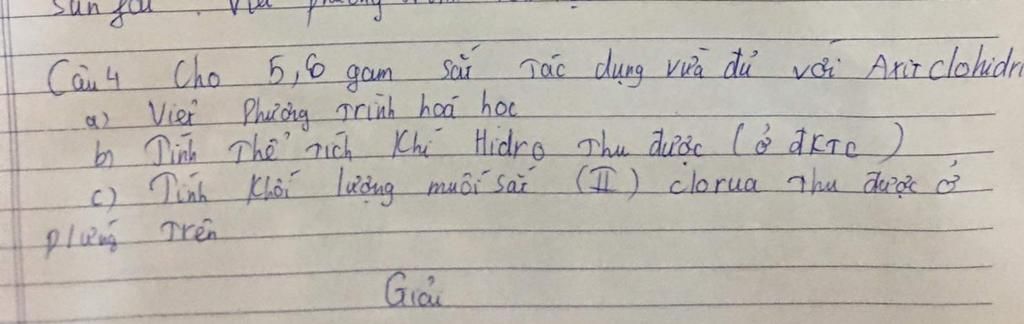 Sunfat. Viết phương
Câu 4 Cho 5,6 gam sắt Tác dụng vừa đủ với Axit clohidri
a) Viết Phương Trình hoá học
b) Tính Thể Tích Khí Hidro Thu được (ở đKTC)
c) Tính Khối lượng muối sắt (II) clorua Thu được ở
Trên
Giải